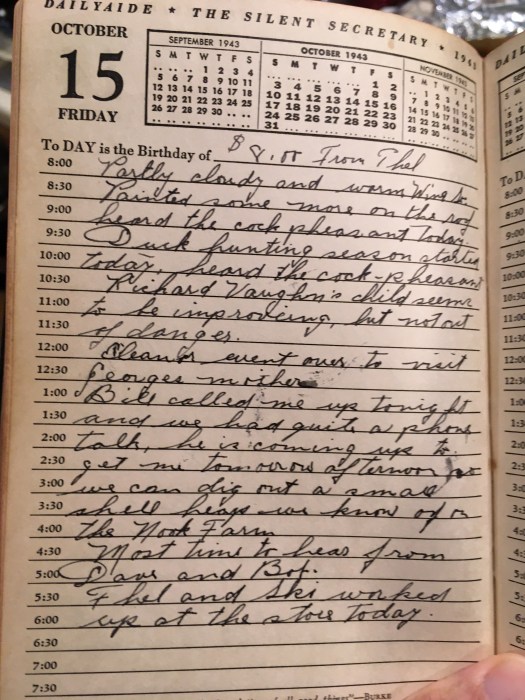 DAILYAIDE ★ THE SILENT SECRETARY ★ 194
OCTOBER
15
FRIDAY
SEPTEMBER 1943
S M T W T F S
.. .. .. 1 2 3 4
5 6 7 8 9 10 11
12 13 14 15 16 17 18
19 20 21 22 23 24 25
26 27 28 29 30 .. ..
OCTOBER 1943
S M T W T F S
.. .. .. .. .. 1 2
3 4 5 6 7 8 9
10 11 12 13 14 15 16
17 18 19 20 21 22 23
24 25 26 27 28 29 30
31 .. .. .. .. .. ..
NOVEMBER 1943
S M T W T F S
.. 1 2 3 4 5 6
7 8 9 10 11 12 13
14 15 16 17 18 19 20
21 22 23 24 25 26 27
28 29 30 .. .. .. ..
To DAY is the Birthday of $8.00 From Thel
8:00 Partly cloudy and warm Wind
8:30 Painted some more on the
9:00 heard the cock pheasant today.
9:30 Duck hunting season started
10:00 today, heard the cock-pheasant
10:30 Richard Vaughn's child seems
11:00 to be improving, but not out
11:30 of danger.
12:00 Eleanor went over to visit
12:30 Georges mother
1:00 Bill called me up tonight
1:30 and we had quite a phone
2:00 talk, he is coming up to
2:30 get me tomorrow afternoon so
3:00 we can dig out a small
3:30 shell heap we know of on
4:00 the Nook Farm
4:30 Most time to hear from
5:00 Dave and Bob.
5:30 Thel and Ski worked
6:00 up at the store today.
6:30
7:00
7:30
good things"—BURKE